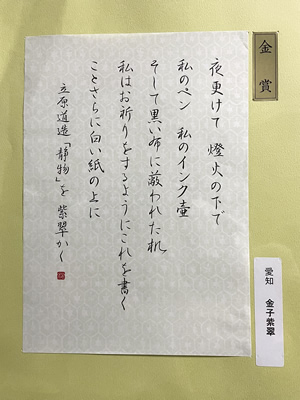 金賞
夜更けて 燈火の下で
私のペン 私のインク壷
そして黒い布に蔽われた机
私はお祈りをするようにこれを書く
ことさらに白い紙の上に
立原道造「静物」を 紫翠かく
愛知 金子紫翠